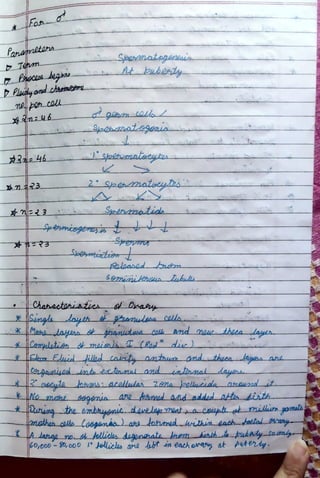 * For ♂
Parameters
▷ Term Spermatogenesis
▷ Process begins At Puberty
▷ Ploidy and chromosome
no. per cell
* 2n=46 ♂ germ cells
Spermatogonia
↓
* 2n=46 1° spermatocytes
* n=23 2° spermatocytes
* n=23 Spermatids
Spermiogenesis ↓ ↓ ↓ ↓
* n=23 Sperms
Spermiation ↓
Released from
Seminiferous Tubules
• Characteristics of Ovary
* Single layer of granulosa cells
* More layers of granulosa cells and new theca layer
* Completion of meiosis I (Red⁺ div)
* Fluid filled cavity antrum and theca layers are
organised into external and internal layers
* 2° oocyte forms acellular zona pellucida around it
* No more oogonia are formed and added after birth
* During the embryonic development, a couple of million gamete
mother cells (oogonia) are formed within each foetal ovary
* A large no. of follicles degenerate from birth to puberty so only
60,000 - 80,000 1° follicles are left in each ovary at puberty.